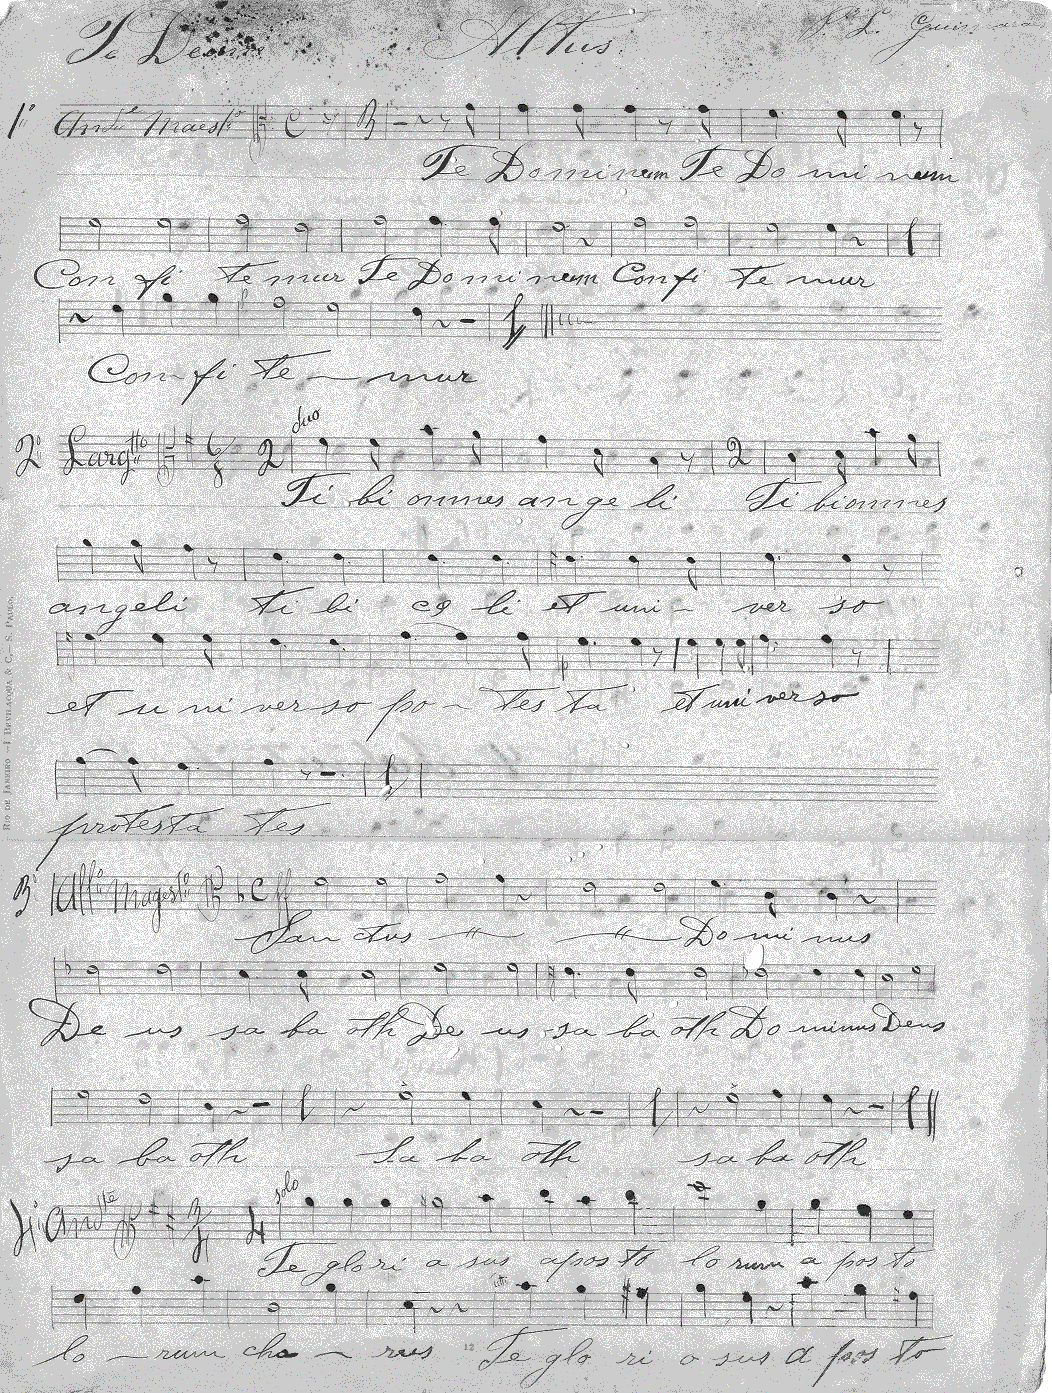 Te Deum Altus.
1º And.te Maest.º
Te Dominum Te Do mi num
Con fi te mur Te Dominum Confi te mur
Con fi te mur
2º Larg.tto 2 duo 2
Ti bi omnes an ge li Ti bi omnes
angeli ti bi ce li et uni - ver so
et u ni ver so po - tes ta et uni ver so
protesta tes
3º All.º Magest.º C
San ctus Do mi nus
De us sa ba oth De us sa ba oth Do minus Deus
sa ba oth Sa ba oth sa ba oth
4º And.te 4 solo
Te glo ri o sus apos to lo rum a pos to
lo - rum cho - rus Te glo ri o sus a pos to
12
RIO DE JANEIRO — I. BEVILACQUA & C. — S. PAULO.